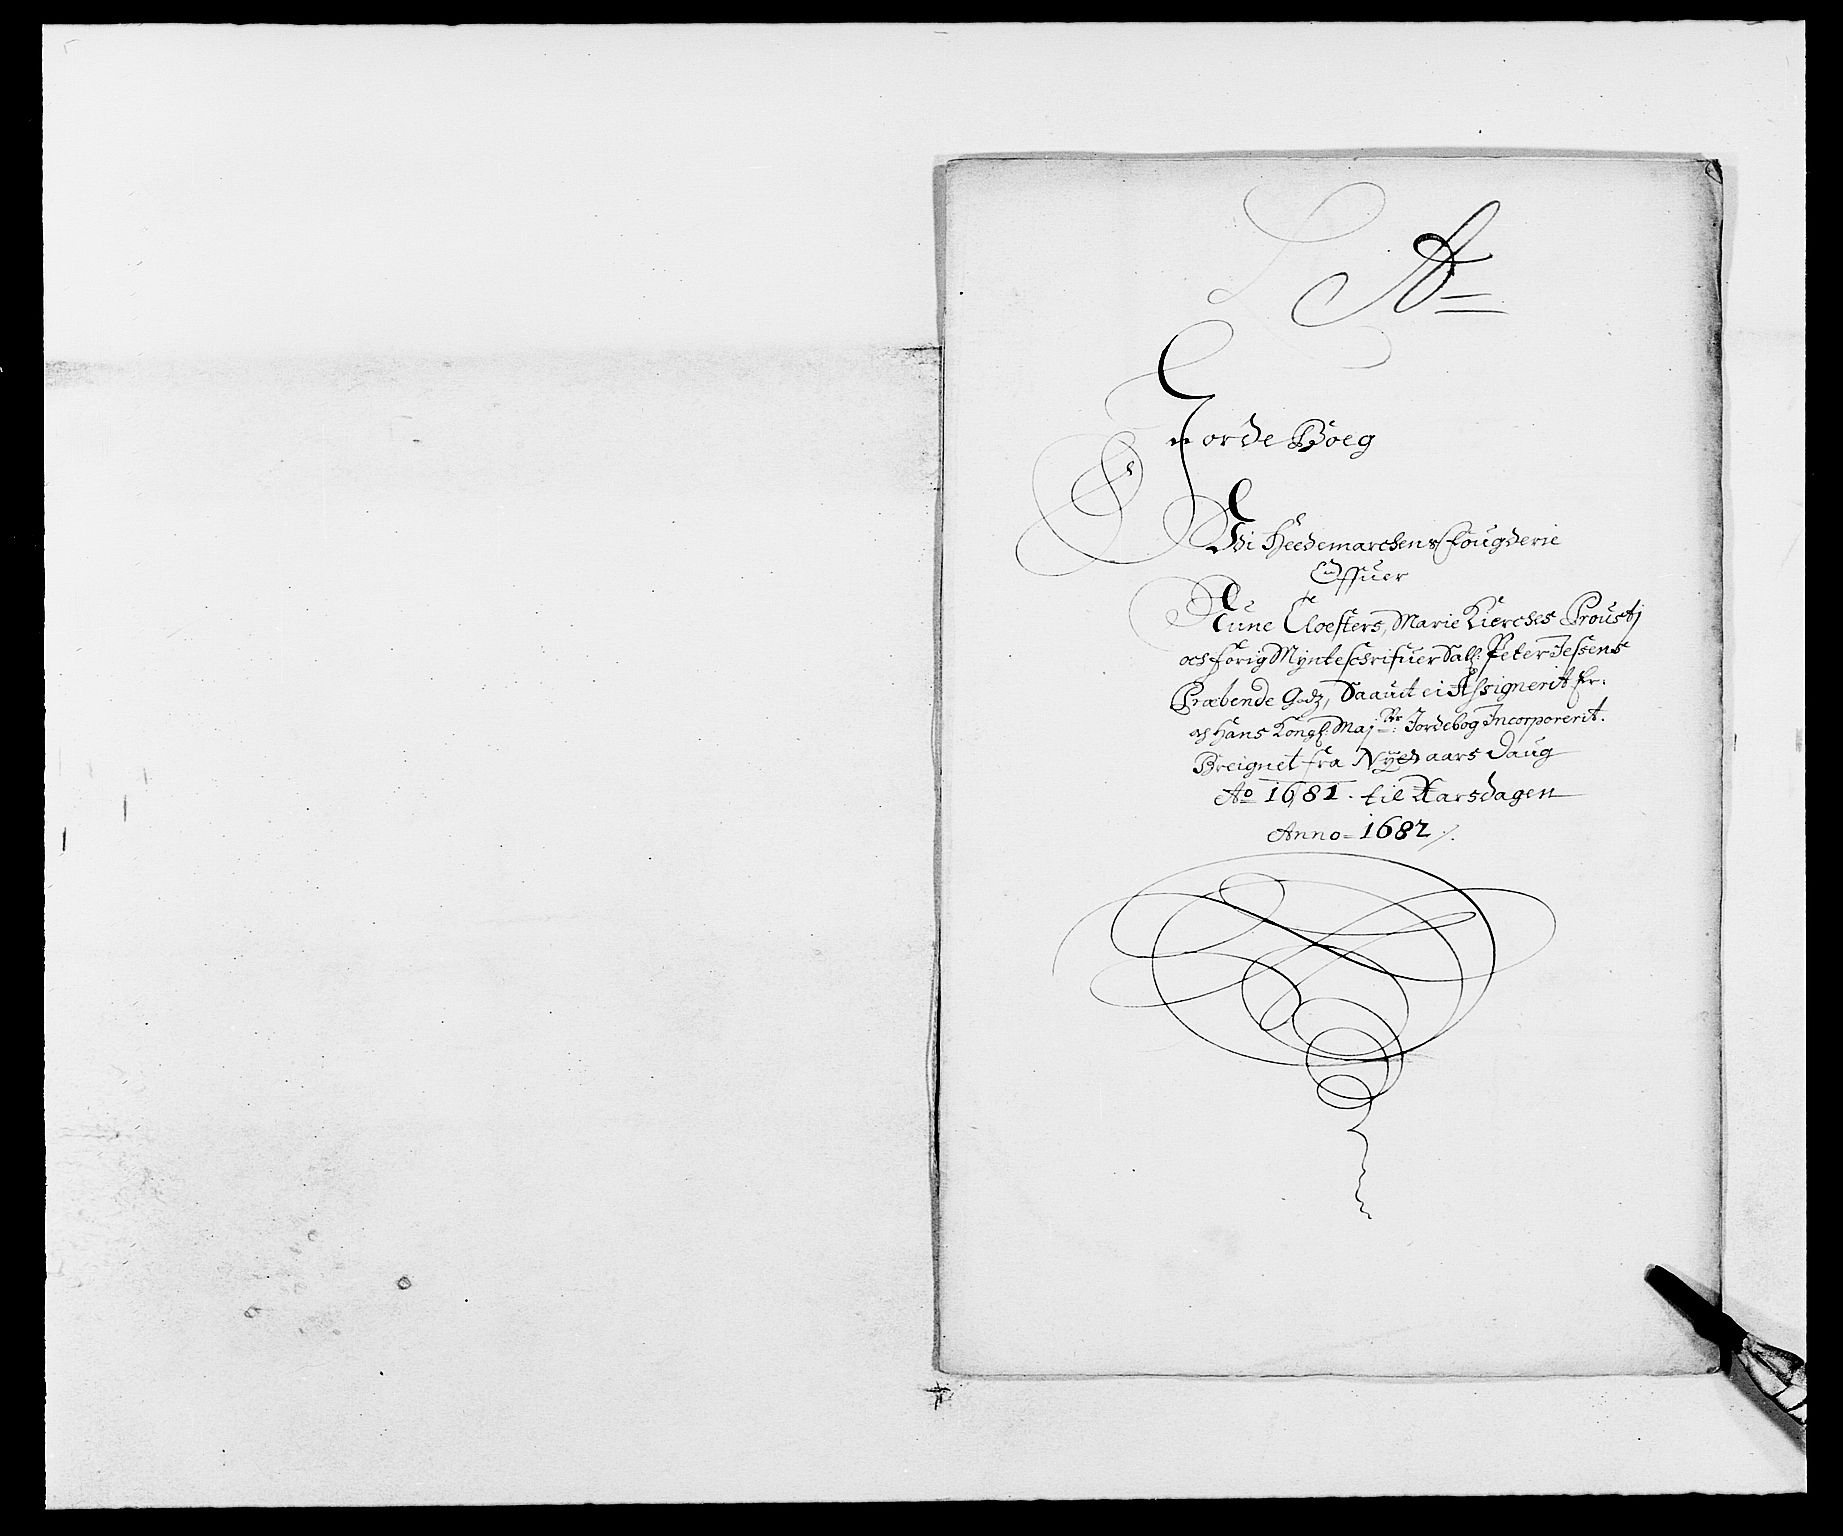 A
Jorde Boeg
Udi Heedemarchens fougderie
Offuer
Nune Cloesters, Marie Kierches Proustj
och forig Mynteschrifuer Sal: Peter Jessens
Præbende Godz, Saauit ei Assignerit er.
och Hans Kongl: Maj: Jordebog Incorporerit.
Breignet fra Nye aars Daug
Ao 1681. til Aarsdagen
Anno 1682